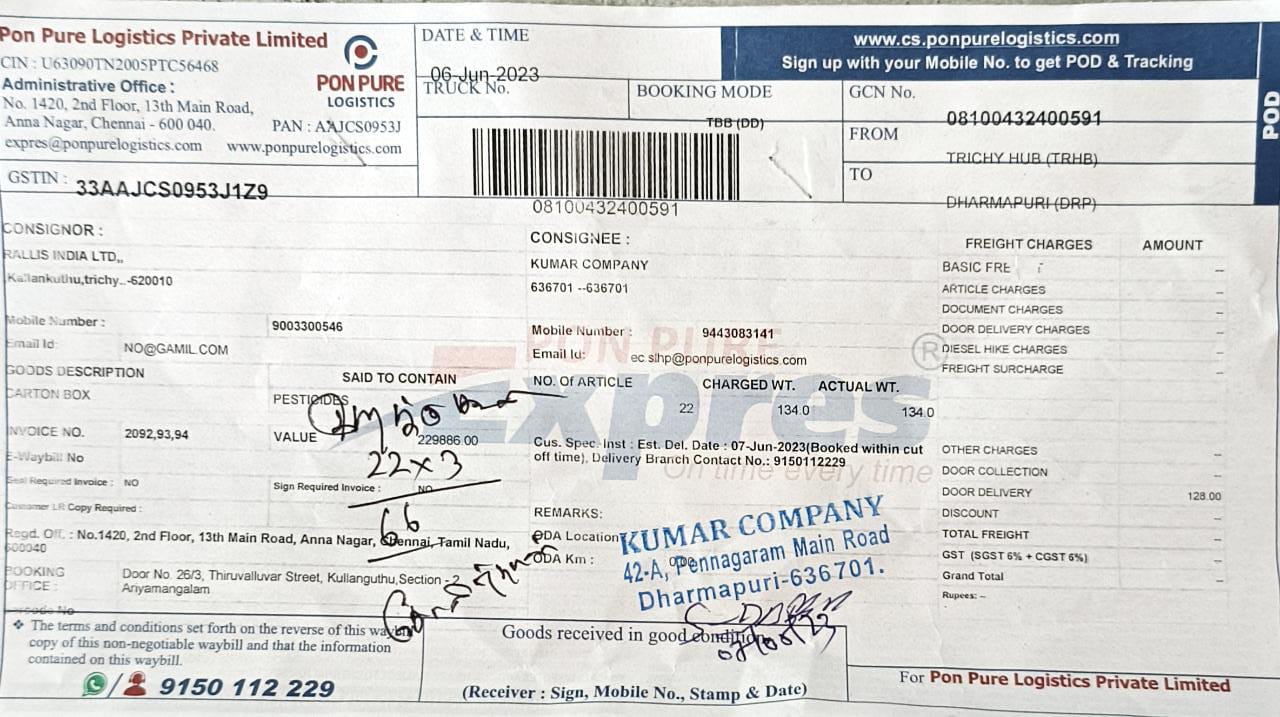 Pon Pure Logistics Private Limited
CIN : U63090TN2005PTC56468
Administrative Office :
No. 1420, 2nd Floor, 13th Main Road,
Anna Nagar, Chennai - 600 040.
PAN : AAJCS0953J
expres@ponpurelogistics.com www.ponpurelogistics.com
PON PURE
LOGISTICS
GSTIN : 33AAJCS0953J1Z9
DATE & TIME
06-Jun-2023
TRUCK No.
BOOKING MODE
TBB (DD)
08100432400591
www.cs.ponpurelogistics.com
Sign up with your Mobile No. to get POD & Tracking
GCN No.
08100432400591
FROM
TRICHY HUB (TRHB)
TO
DHARMAPURI (DRP)
POD
CONSIGNOR :
RALLIS INDIA LTD,,
Kallankuthu,trichy..-620010
Mobile Number : 9003300546
Email Id: NO@GAMIL.COM
CONSIGNEE :
KUMAR COMPANY
636701 --636701
Mobile Number : 9443083141
Email Id: ec.slhp@ponpurelogistics.com
GOODS DESCRIPTION
CARTON BOX
SAID TO CONTAIN
PESTICIDES
NO. Of ARTICLE CHARGED WT. ACTUAL WT.
22 134.0 134.0
INVOICE NO. 2092,93,94
VALUE 229886.00
22 x 3
66
E-Waybill No
Seal Required Invoice : NO
Sign Required Invoice : NO
Customer LR Copy Required :
Cus. Spec. Inst : Est. Del. Date : 07-Jun-2023(Booked within cut
off time), Delivery Branch Contact No.: 9150112229
PON PURE
Expres
On time every time
REMARKS:
ODA Location
ODA Km : 0.00
KUMAR COMPANY
42-A, Pennagaram Main Road
Dharmapuri-636701.
Regd. Off. : No.1420, 2nd Floor, 13th Main Road, Anna Nagar, Chennai, Tamil Nadu,
600040
BOOKING
OFFICE :
Door No. 26/3, Thiruvalluvar Street, Kullanguthu,Section -2
Ariyamangalam
FREIGHT CHARGES AMOUNT
BASIC FRE --
ARTICLE CHARGES --
DOCUMENT CHARGES --
DOOR DELIVERY CHARGES --
DIESEL HIKE CHARGES --
FREIGHT SURCHARGE --
OTHER CHARGES --
DOOR COLLECTION --
DOOR DELIVERY 128.00
DISCOUNT --
TOTAL FREIGHT --
GST (SGST 6% + CGST 6%) --
Grand Total --
Rupees: --
❖ The terms and conditions set forth on the reverse of this waybill
copy of this non-negotiable waybill and that the information
contained on this waybill.
9150 112 229
Goods received in good condition
(Receiver : Sign, Mobile No., Stamp & Date)
For Pon Pure Logistics Private Limited